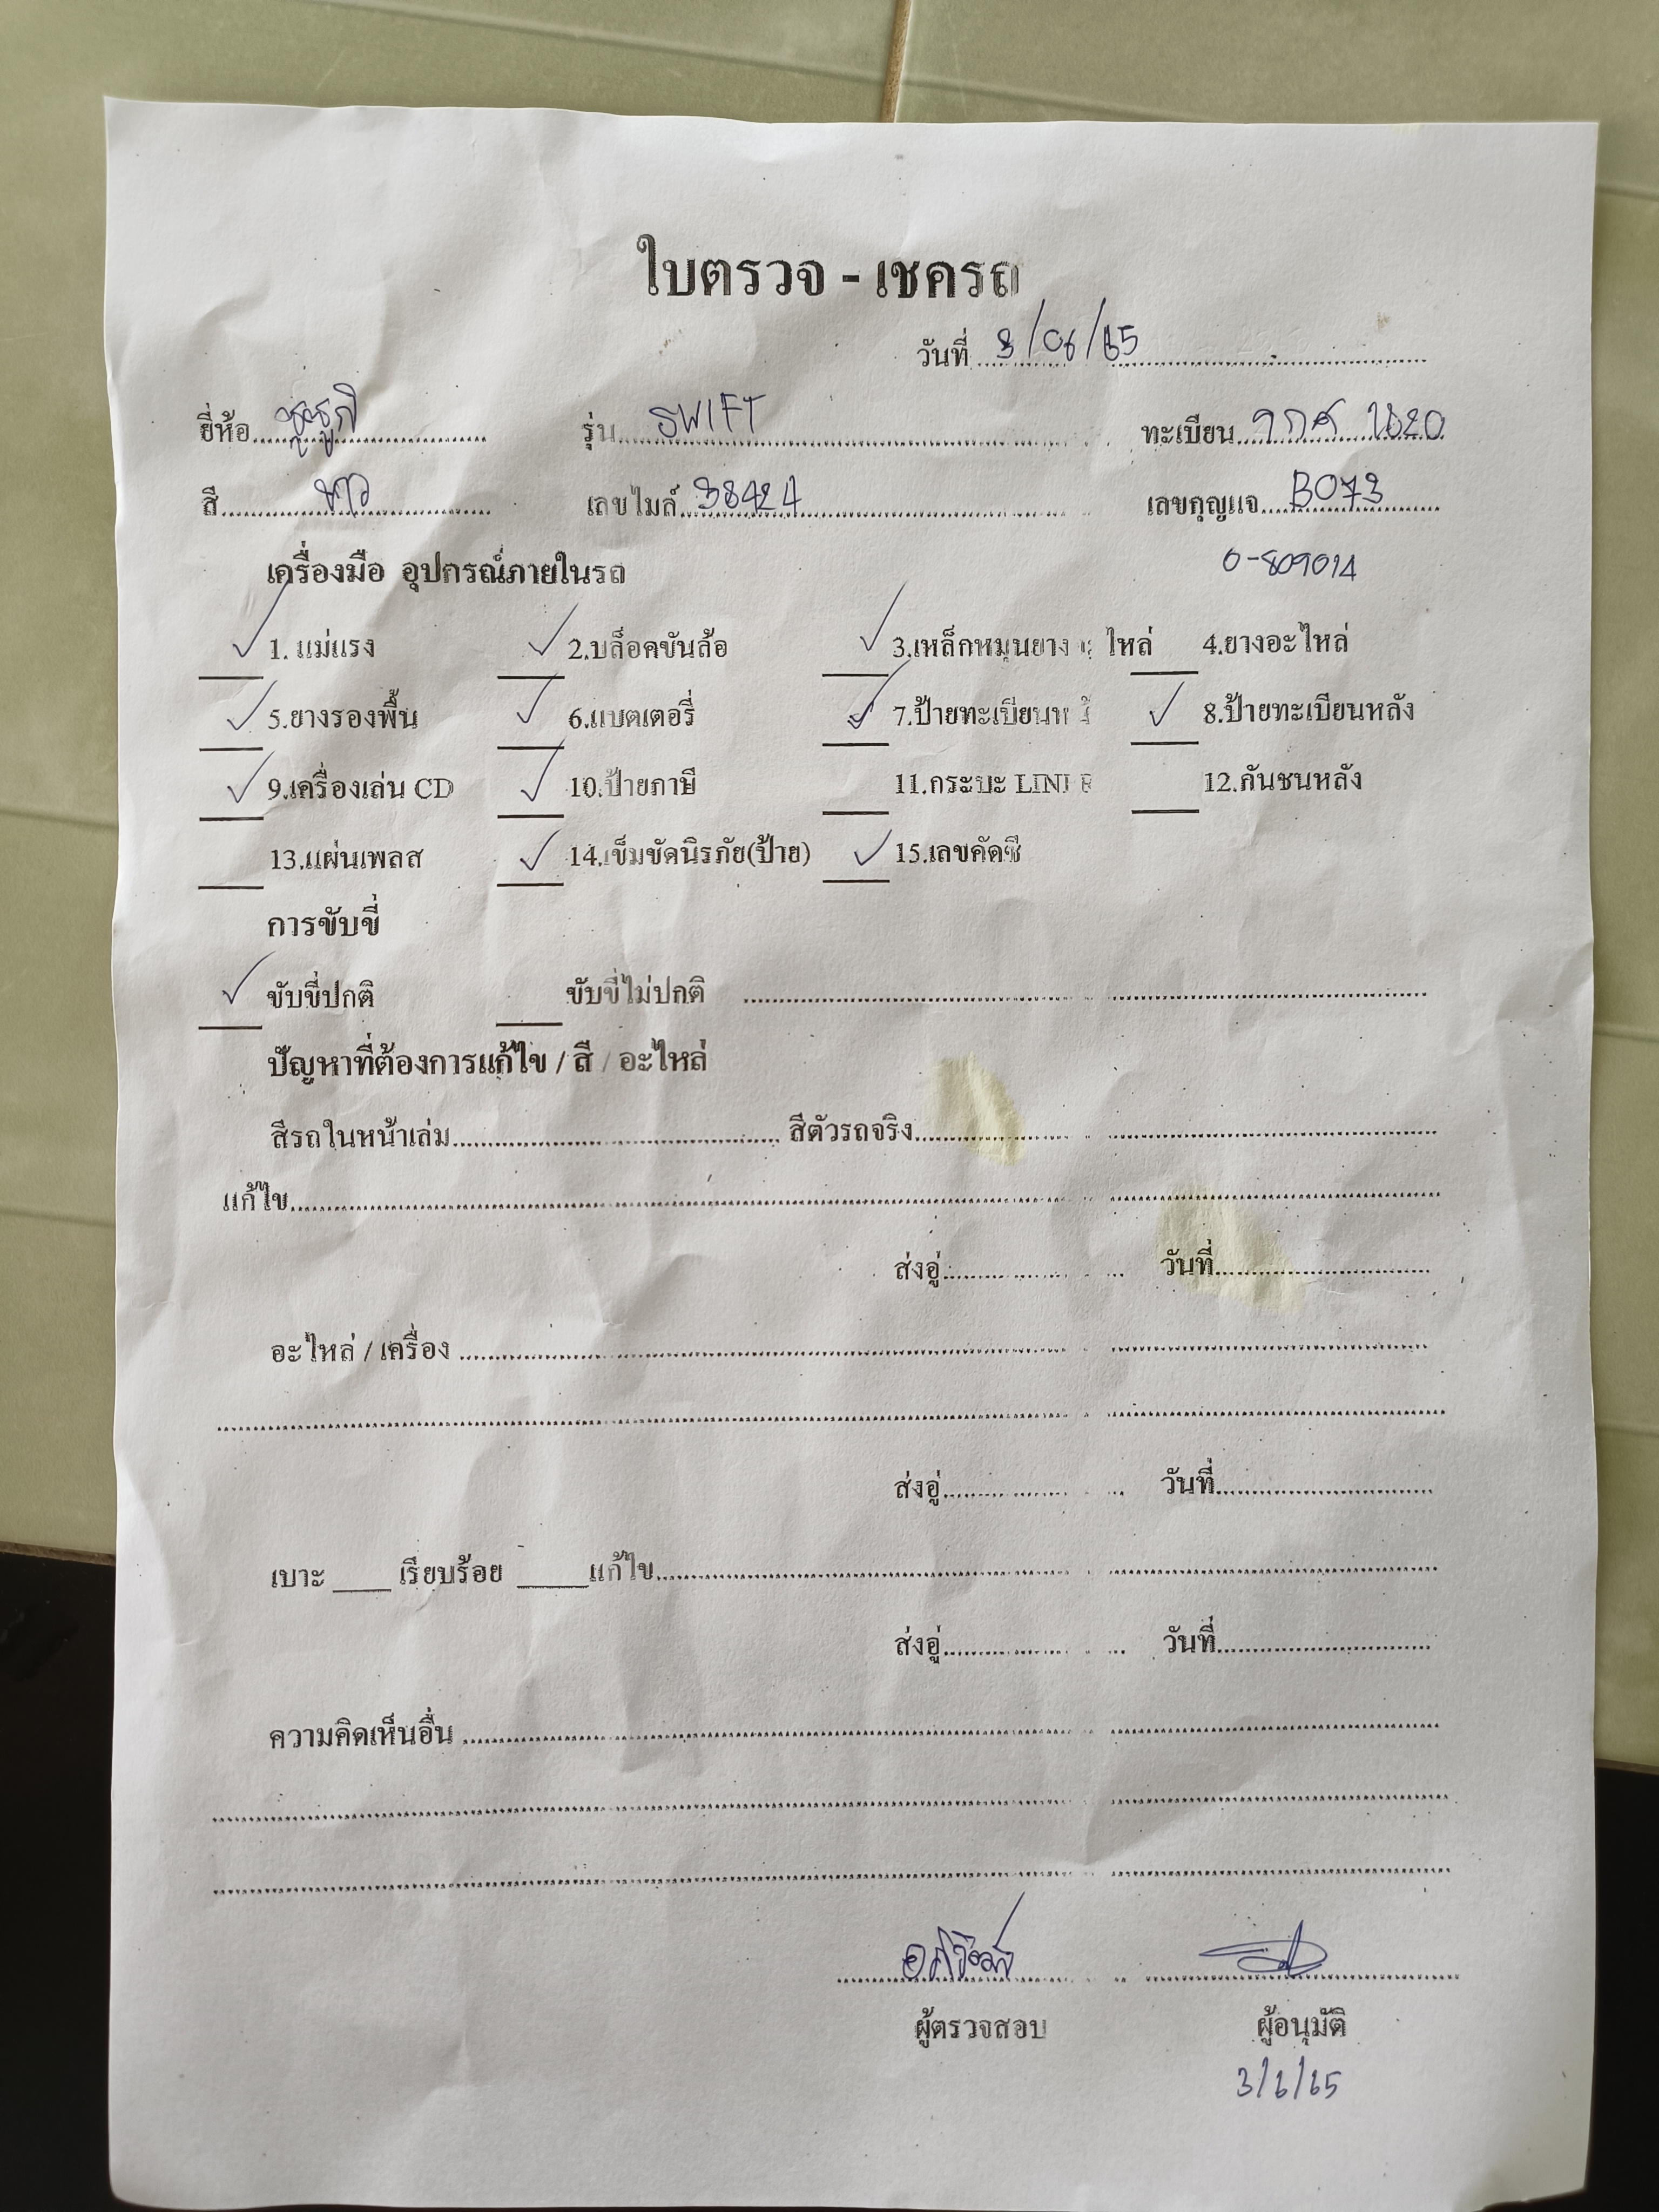 ใบตรวจ - เชครถ
วันที่ 3/06/65
ยี่ห้อ ซูซูกิ รุ่น SWIFT ทะเบียน 9กศ 1620
สี ขาว เลขไมล์ 38424 เลขกุญแจ B073
0-809014
เครื่องมือ อุปกรณ์ภายในรถ
✓ 1. แม่แรง ✓ 2.บล็อคขันล้อ ✓ 3.เหล็กหมุนยาง ไหล่ 4.ยางอะไหล่
✓ 5.ยางรองพื้น ✓ 6.แบตเตอรี่ ✓ 7.ป้ายทะเบียนห ✓ 8.ป้ายทะเบียนหลัง
✓ 9.เครื่องเล่น CD ✓ 10.ป้ายภาษี 11.กระบะ 12.กันชนหลัง
13.แผ่นเพลส ✓ 14.เข็มขัดนิรภัย(ป้าย) ✓ 15.เลขคัดซี
การขับขี่
✓ ขับขี่ปกติ ขับขี่ไม่ปกติ
ปัญหาที่ต้องการแก้ไข / สี / อะไหล่
สีรถในหน้าเล่ม สีตัวรถจริง
แก้ไข
ส่งอู่ วันที่
อะไหล่ / เครื่อง
ส่งอู่ วันที่
เบาะ ____ เรียบร้อย ____ แก้ไข
ส่งอู่ วันที่
ความคิดเห็นอื่น
ผู้ตรวจสอบ ผู้อนุมัติ
3/6/65